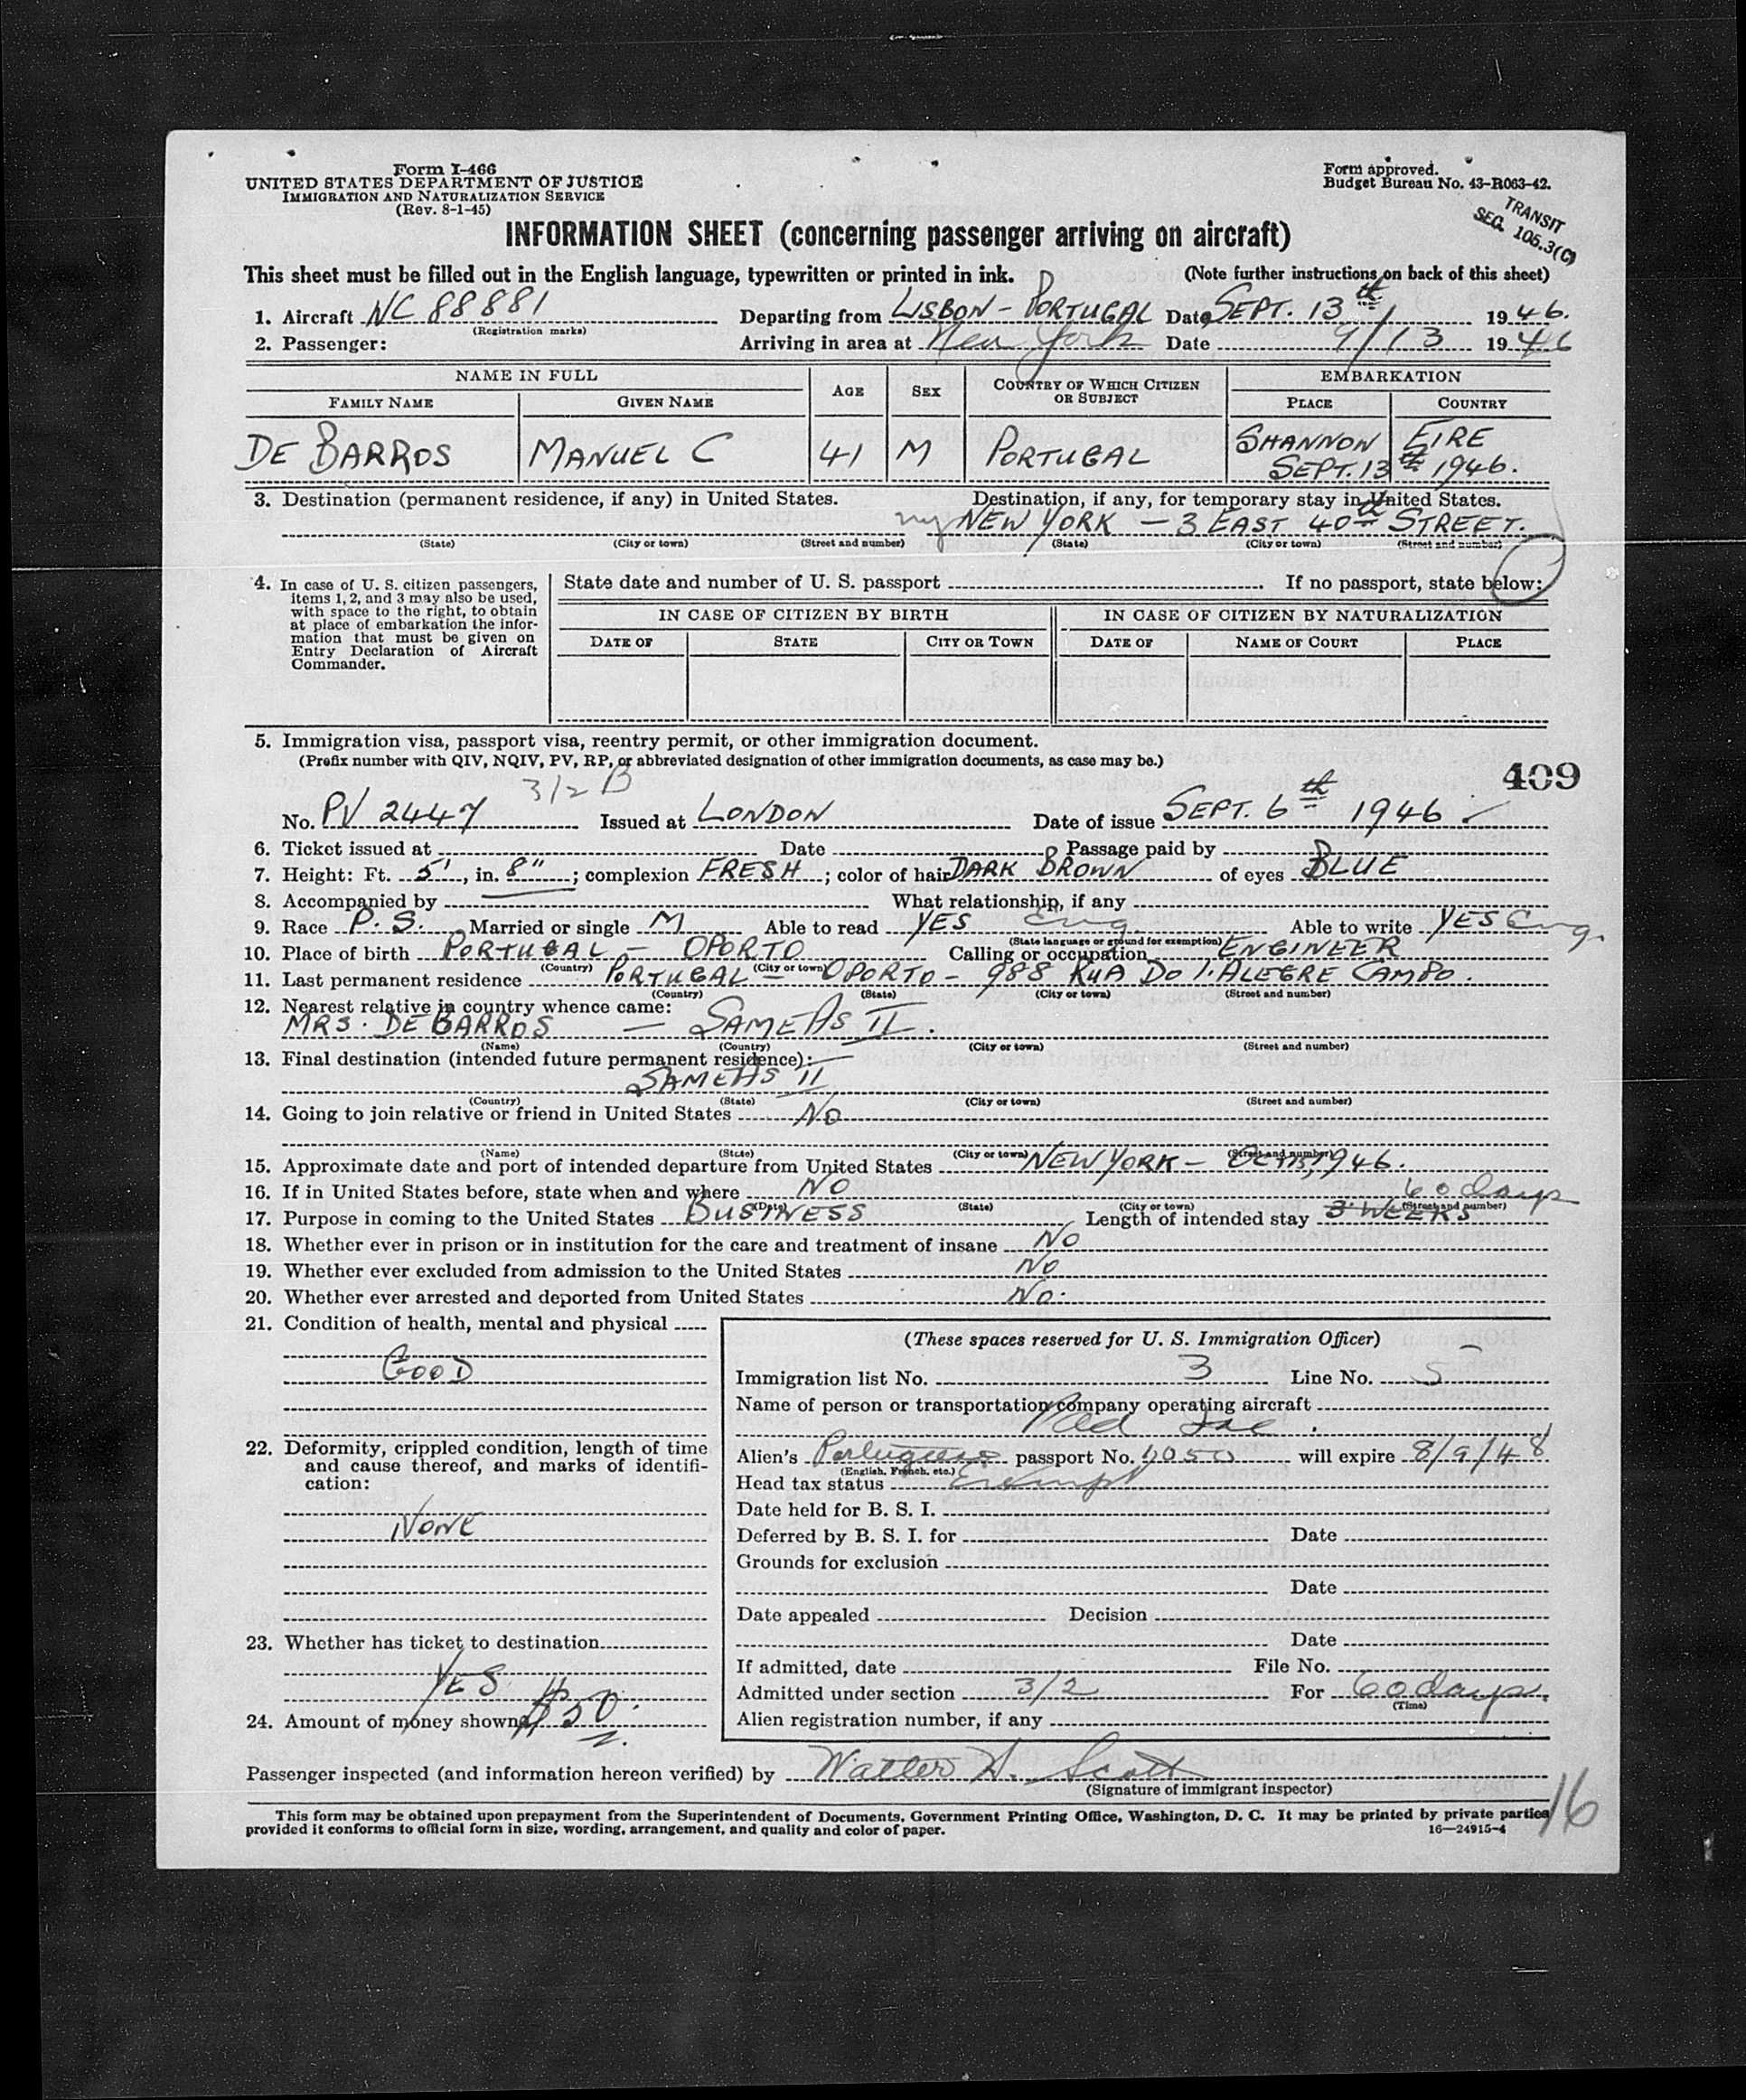 Form I-466
UNITED STATES DEPARTMENT OF JUSTICE
IMMIGRATION AND NATURALIZATION SERVICE
(Rev. 8-1-45)
Form approved.
Budget Bureau No. 43-R063-42.
TRANSIT
SEC. 106.3(C)
INFORMATION SHEET (concerning passenger arriving on aircraft)
This sheet must be filled out in the English language, typewritten or printed in ink. (Note further instructions on back of this sheet)
1. Aircraft NC 88881 Departing from LISBON - PORTUGAL Date SEPT. 13th 1946.
(Registration marks)
2. Passenger: Arriving in area at New York Date 9/13 1946
NAME IN FULL AGE SEX COUNTRY OF WHICH CITIZEN OR SUBJECT EMBARKATION
FAMILY NAME GIVEN NAME PLACE COUNTRY
DE BARROS MANUEL C 41 M PORTUGAL SHANNON EIRE
SEPT. 13th 1946.
3. Destination (permanent residence, if any) in United States. Destination, if any, for temporary stay in United States.
ny NEW YORK - 3 EAST 40th STREET.
(State) (City or town) (Street and number) (State) (City or town) (Street and number)
4. In case of U. S. citizen passengers, items 1, 2, and 3 may also be used, with space to the right, to obtain at place of embarkation the information that must be given on Entry Declaration of Aircraft Commander.
State date and number of U. S. passport If no passport, state below:
IN CASE OF CITIZEN BY BIRTH IN CASE OF CITIZEN BY NATURALIZATION
DATE OF STATE CITY OR TOWN DATE OF NAME OF COURT PLACE
5. Immigration visa, passport visa, reentry permit, or other immigration document.
(Prefix number with QIV, NQIV, PV, RP, or abbreviated designation of other immigration documents, as case may be.)
409
3/2 B
No. PV 2447 Issued at LONDON Date of issue SEPT. 6th 1946
6. Ticket issued at Date Passage paid by
7. Height: Ft. 5', in. 8"; complexion FRESH; color of hair DARK BROWN of eyes BLUE
8. Accompanied by What relationship, if any
9. Race P.S. Married or single M Able to read YES Eng. Able to write YES Eng.
(State language or ground for exemption)
10. Place of birth PORTUGAL - OPORTO Calling or occupation ENGINEER
(Country) (City or town)
11. Last permanent residence PORTUGAL - OPORTO - 988 RUA DO ALEGRE CAMPO.
(Country) (State) (City or town) (Street and number)
12. Nearest relative in country whence came:
MRS. DE BARROS - SAME AS II.
(Name) (Country) (City or town) (Street and number)
13. Final destination (intended future permanent residence):
SAME AS II
(Country) (State) (City or town) (Street and number)
14. Going to join relative or friend in United States NO
(Name) (State) (City or town) (Street and number)
15. Approximate date and port of intended departure from United States NEW YORK - 1946.
16. If in United States before, state when and where NO
(Date) (State) (City or town) (Street and number)
60 days
17. Purpose in coming to the United States BUSINESS Length of intended stay 3 WEEKS
18. Whether ever in prison or in institution for the care and treatment of insane NO
19. Whether ever excluded from admission to the United States NO
20. Whether ever arrested and deported from United States NO.
21. Condition of health, mental and physical
GOOD
22. Deformity, crippled condition, length of time and cause thereof, and marks of identification:
NONE
23. Whether has ticket to destination
YES
24. Amount of money shown $50.
(These spaces reserved for U. S. Immigration Officer)
Immigration list No. 3 Line No. 5
Name of person or transportation company operating aircraft
Inc.
Alien's Portuguese passport No. 6050 will expire 8/9/48
(English, French, etc.)
Head tax status Exempt
Date held for B. S. I.
Deferred by B. S. I. for Date
Grounds for exclusion
Date
Date appealed Decision
Date
If admitted, date File No.
Admitted under section 3/2 For 60 days.
(Time)
Alien registration number, if any
Passenger inspected (and information hereon verified) by Walter H. Scott
(Signature of immigrant inspector)
16
This form may be obtained upon prepayment from the Superintendent of Documents, Government Printing Office, Washington, D. C. It may be printed by private parties
provided it conforms to official form in size, wording, arrangement, and quality and color of paper. 16—24915-4